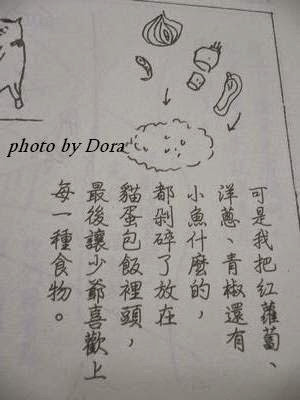 photo by Dora
可是我把紅蘿蔔、
洋蔥、青椒還有
小魚什麼的，
都剁碎了放在
貓蛋包飯裡頭，
最後讓少爺喜歡上
每一種食物。